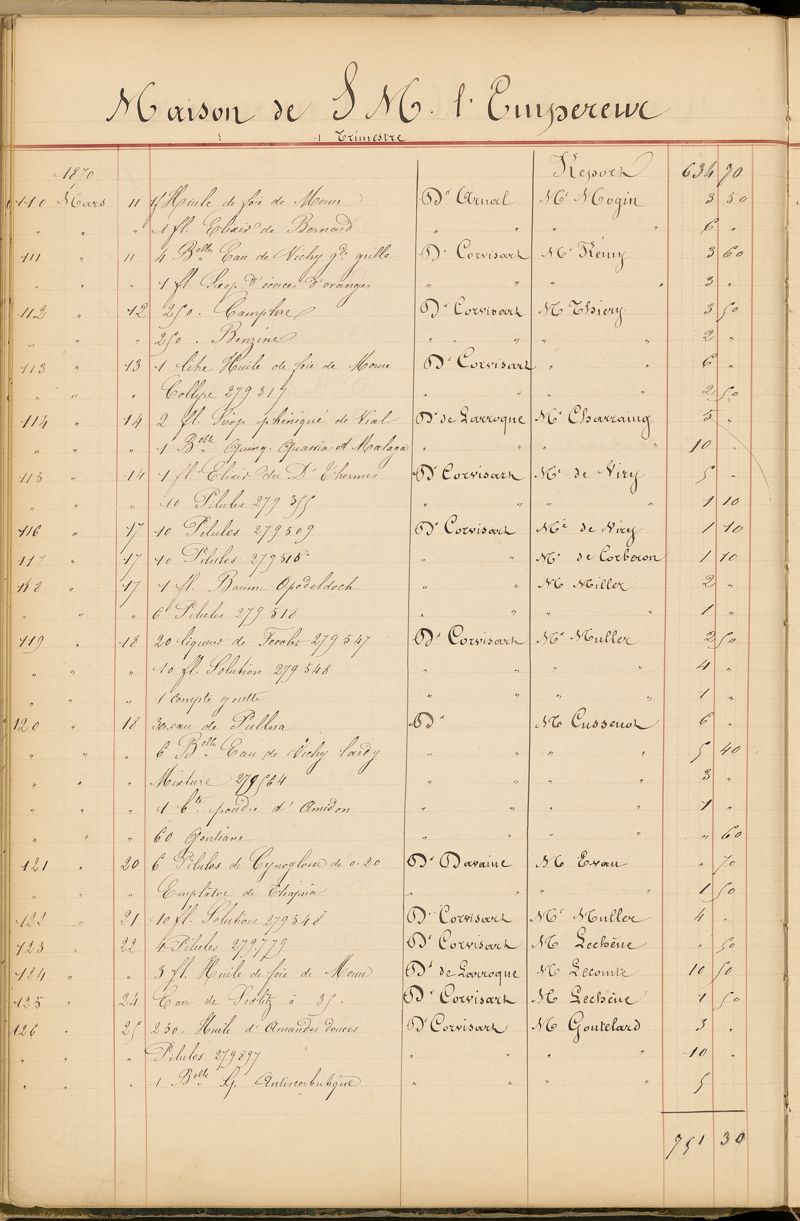 Maison de S M. l'Empereur
1 Trimestre
1870 Report 634 70
110 Mars 11 1 f Huile de foie de Morue Dr Arnal Mr Mogin 3 50
" " " 1 fl. Elixir de Bernard " " " " 6 "
111 " 11 4 Blles Eau de Vichy gde grille Dr Corvisart Mr Rémy 3 60
" " " 1 fl Sirop D'écorces D'oranges " " " 3 "
112 " 12 250. Camphre Dr Corvisart M Thiery 3 50
" " " 250. Benzine " " " " 2 "
113 " 13 1 litre Huile de foie de Morue Dr Corvisart " " 6 "
" " " Collyre 279317 " " " " 2 50
114 " 14 2 fl. Sirop phéniqué de Vial Dr de Larroque Mr Charraing 5 "
" " " 1 Blle Quinq. Quassia et Malaga " " " " 10 "
115 " 14 1 fl. Elixir du Dr Thermes Dr Corvisart Mr de Viry 5 "
" " " 10 Pilules 279355 " " " " 1 10
116 " 17 10 Pilules 279509 Dr Corvisart Mr de Viry 1 10
117 " 17 10 Pilules 279515 " " Mr de Corberon 1 10
118 " 17 1 fl. Baume Opodeldoch " " M Miller 2 "
" " " 6 Pilules 279518 " " " " 1 "
119 " 18 20 liqueur de Fowler 279547 Dr Corvisart Mr Muller 2 50
" " " 10 fl. Solution 279548 " " " " 4 "
" " " 1 compte goutte " " " " 1 "
120 " 18 30. eau de Pullna Dr M Cussenot 6 "
" " " 6 Blles Eau de Vichy lardy " " " " 5 40
" " " Mixture 279564 " " " " 3 "
" " " 1 bte poudre d'Amidon " " " " 1 "
" " " 60 Gentiane " " " " " 60
121 " 20 6 Pilules de Cynoglosse de 0.20 Dr Davaine M Evan " 70
" " " Emplâtre de Thapsia " " " " 1 50
122 " 21 10 fl. Solution 279548 Dr Corvisart Mr Muller 4 "
123 " 22 4 Pilules 279779 Dr Corvisart M Lechêne " 50
124 " " 3 fl. Huile de foie de Morue Dr de Larroque M Lecomte 10 50
125 " 24 Eau de Sedlitz à 35. Dr Corvisart M Lechêne 1 50
126 " 25 250. Huile d'Amandes douces Dr Corvisart M Goutelard 3 "
" " " Pilules 279897 " " " " 10 "
" " " 1 Blle Sp Antiscorbutique " " " " 5
751 30